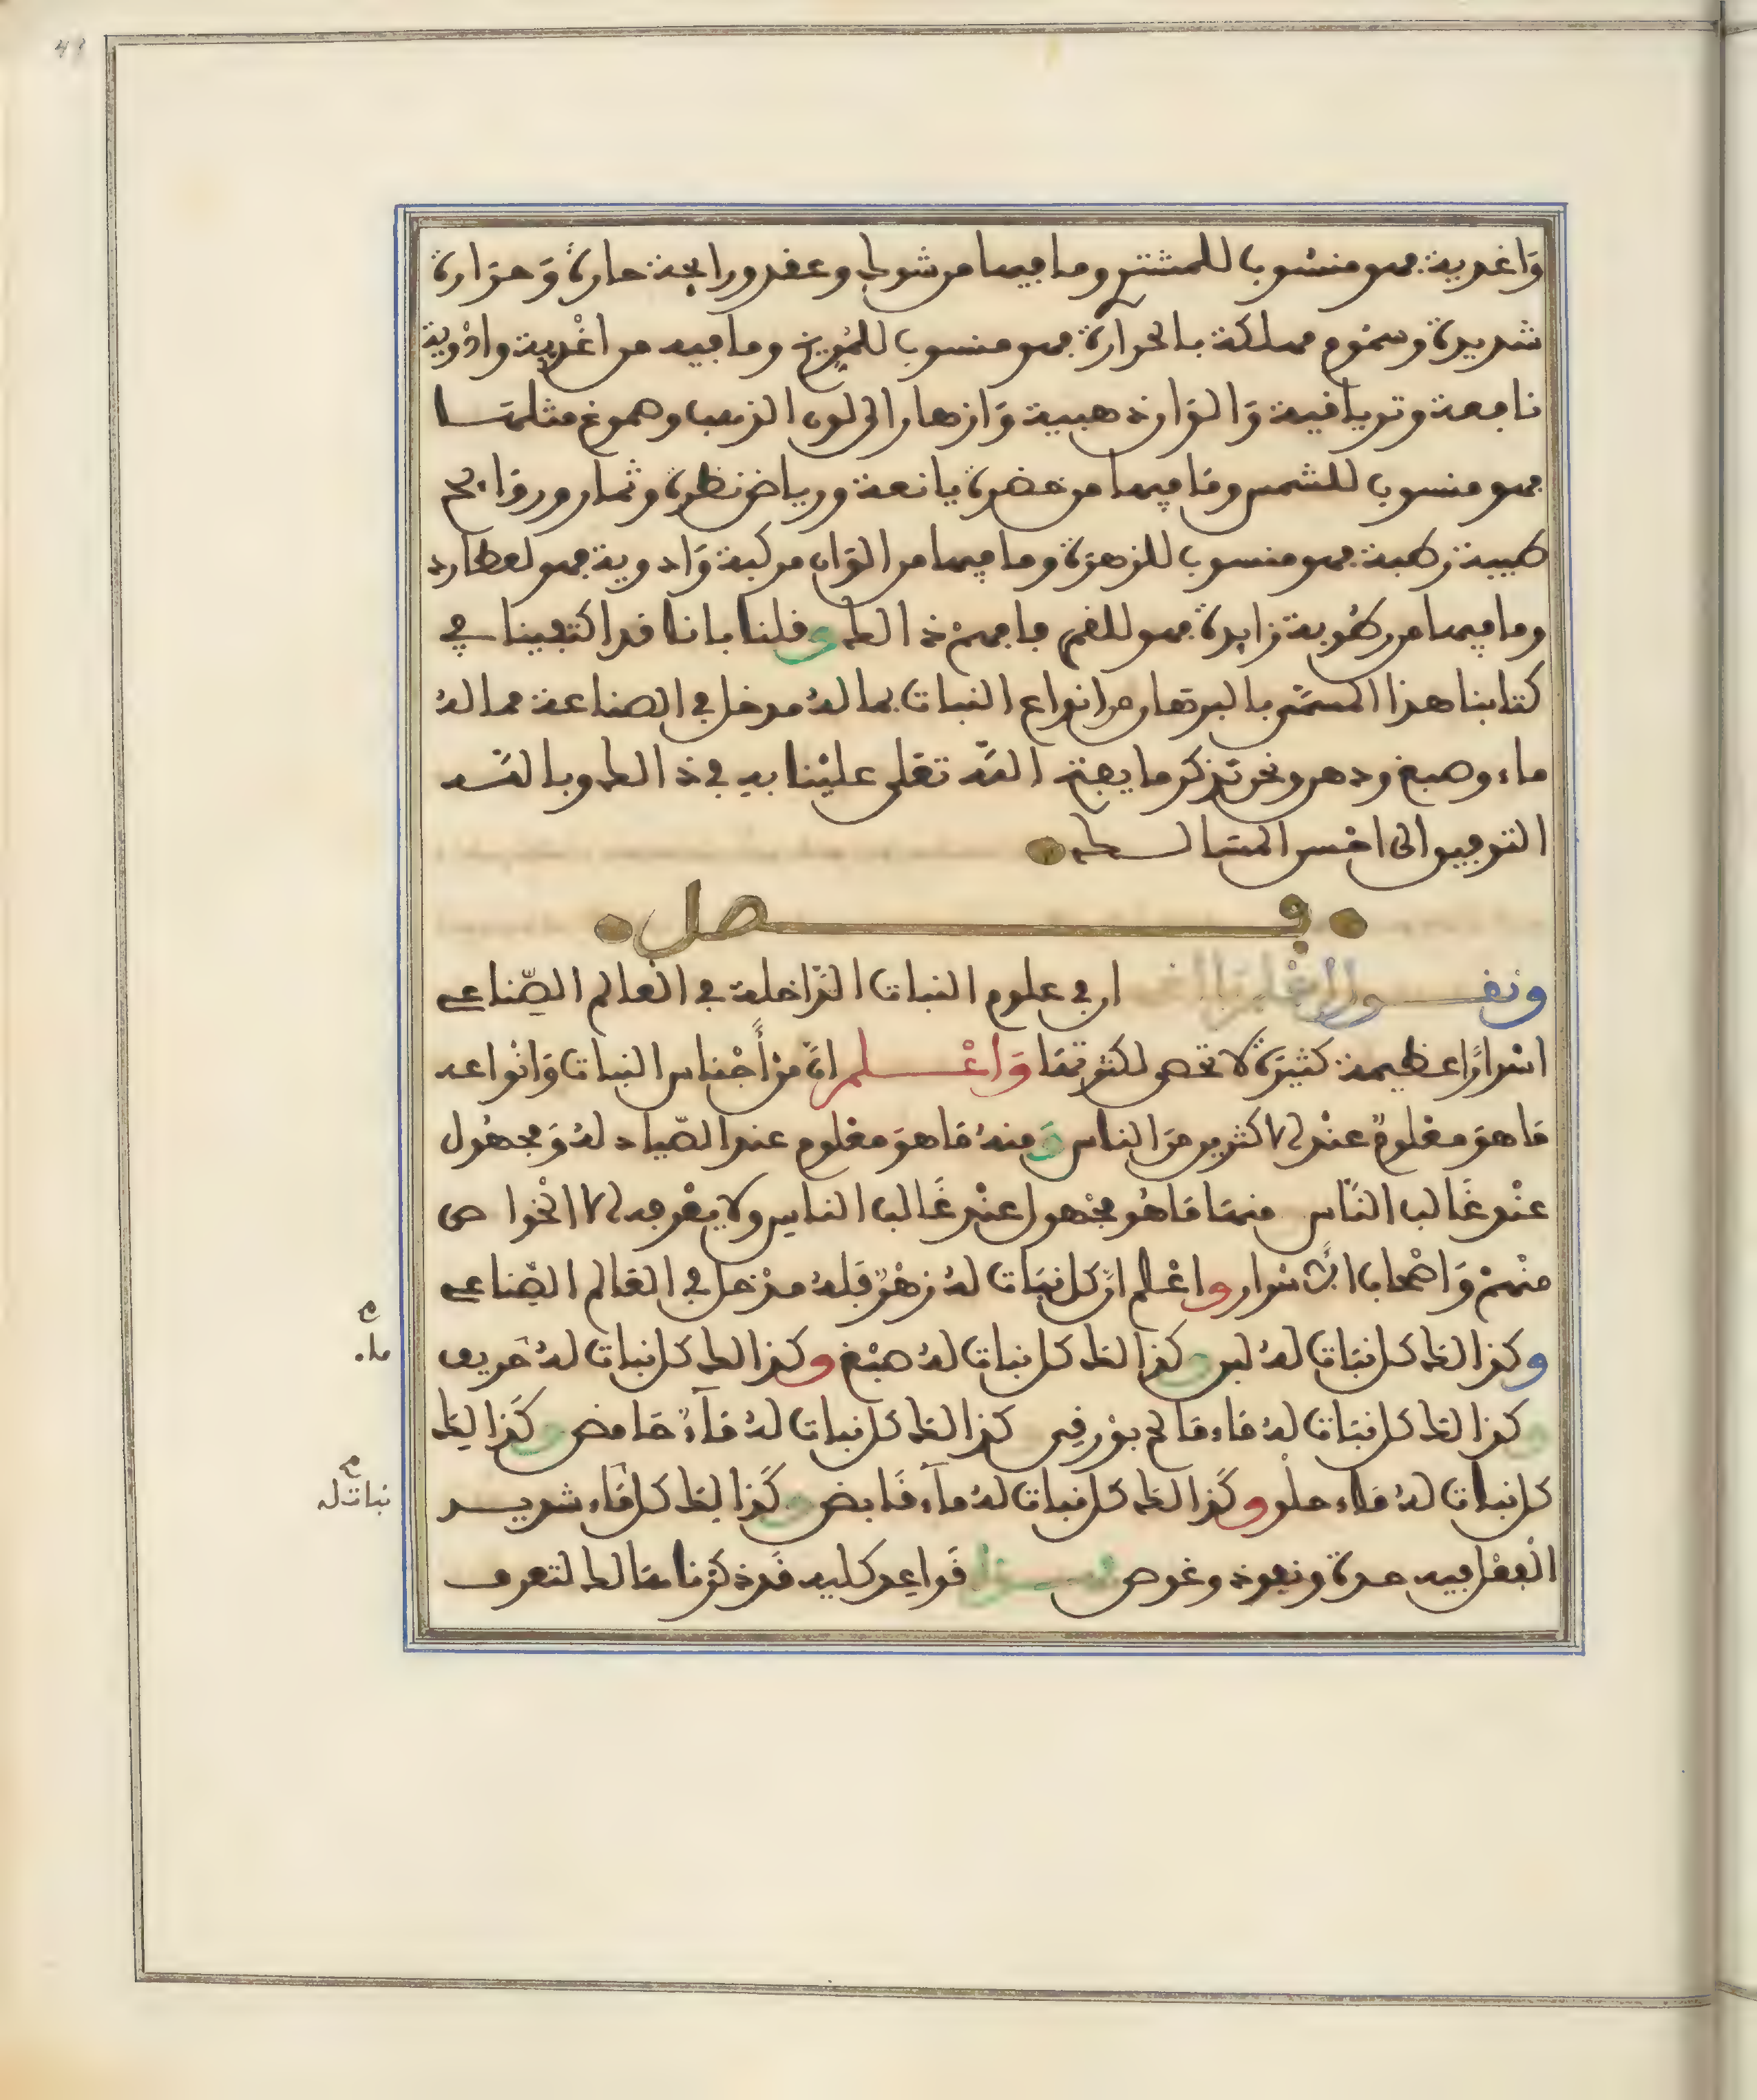 وَاغدية فهو منسُوب للمشتري وما فيها من شوك وعقد ورايحة حارة وَحرَارة
شديدة وسمُوم مهلكة بالحرارة فهو منسوب للمريخ وما فيه من اغْدية وادْوية
نافعة وترياقية وَالوَان ذهبية وَازهار الى لون الذهب وصموغ مثلهَا
فهو منسوب للشمس ومَا فيها من خضرة يانعة ورياض نظرة وثمار وروَايح
طيبة زطبة فهو منسوب للزهرَة وما فيها من الوَان مركبة وَادوية فهو لعطارد
وما فيها من رطُوبة زايدة فهو للقمر فافهمْ ذالك وقلنا باننا قد اكتفينا في
كتابنا هذا المسمَّى بالبرهان من انواع النبات بما لهُ مدخل في الصناعة مما لهُ
ماء وصبغ ودهن ونحن نذكر ما يفتح اللّه تعَلى عليْنا به في ذالك وبالله
التوفيق الى احْسن المسَالك
فصل
ونقول ان في علوم النبات الدَّاخلة في العَالم الصّناعي
اسْرارًا عظيمة كثيرَة لا تحصى لكثرتهَا وَاعْلم انَّ منْ أجْناس النبات وَانْواعه
مَا هوَ معْلومٌ عنْد الاكثرين منَ الناس وَمنهُ مَا هوَ معْلوم عند الصّياد لهُ وَمجهُول
عنْد غَالب النَّاس منهَا مَا هُو مجْهول عنْد غَالب الناس ولا يعْرفه الا الخْواص
منْهمْ وَاصْحاب الاسْرار واعْلم انَّ كل نبَات لهُ زهْرٌ فَلهُ مدْخل في العَالم الصّناعي
وكذالك كل نبَات لهُ لبن وكذالك كل نبات لهُ صبْغ وكذالك كل نبات لهُ حَريف
وكذالك كل نبَات لهُ مَاء مَالح بوْرقي كذالك كل نبات لهُ مَآءٌ حَامض وكَذالك
كل نبات لهُ مَاء حلْو وكَذالك كل نبات لهُ مآء قَابض وكَذالك كل مَاء شديد
الْفعْل فيه حدة ونفوذ وغوص فهذا قَواعد كلية قَد ذكرْناهَا لك لتعرف
م
ماء
م
نبات له